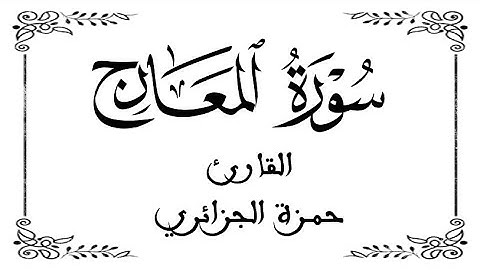 سُورَةُ ٱلْمَعَارِجِ
القارئ
حمزة الجزائري